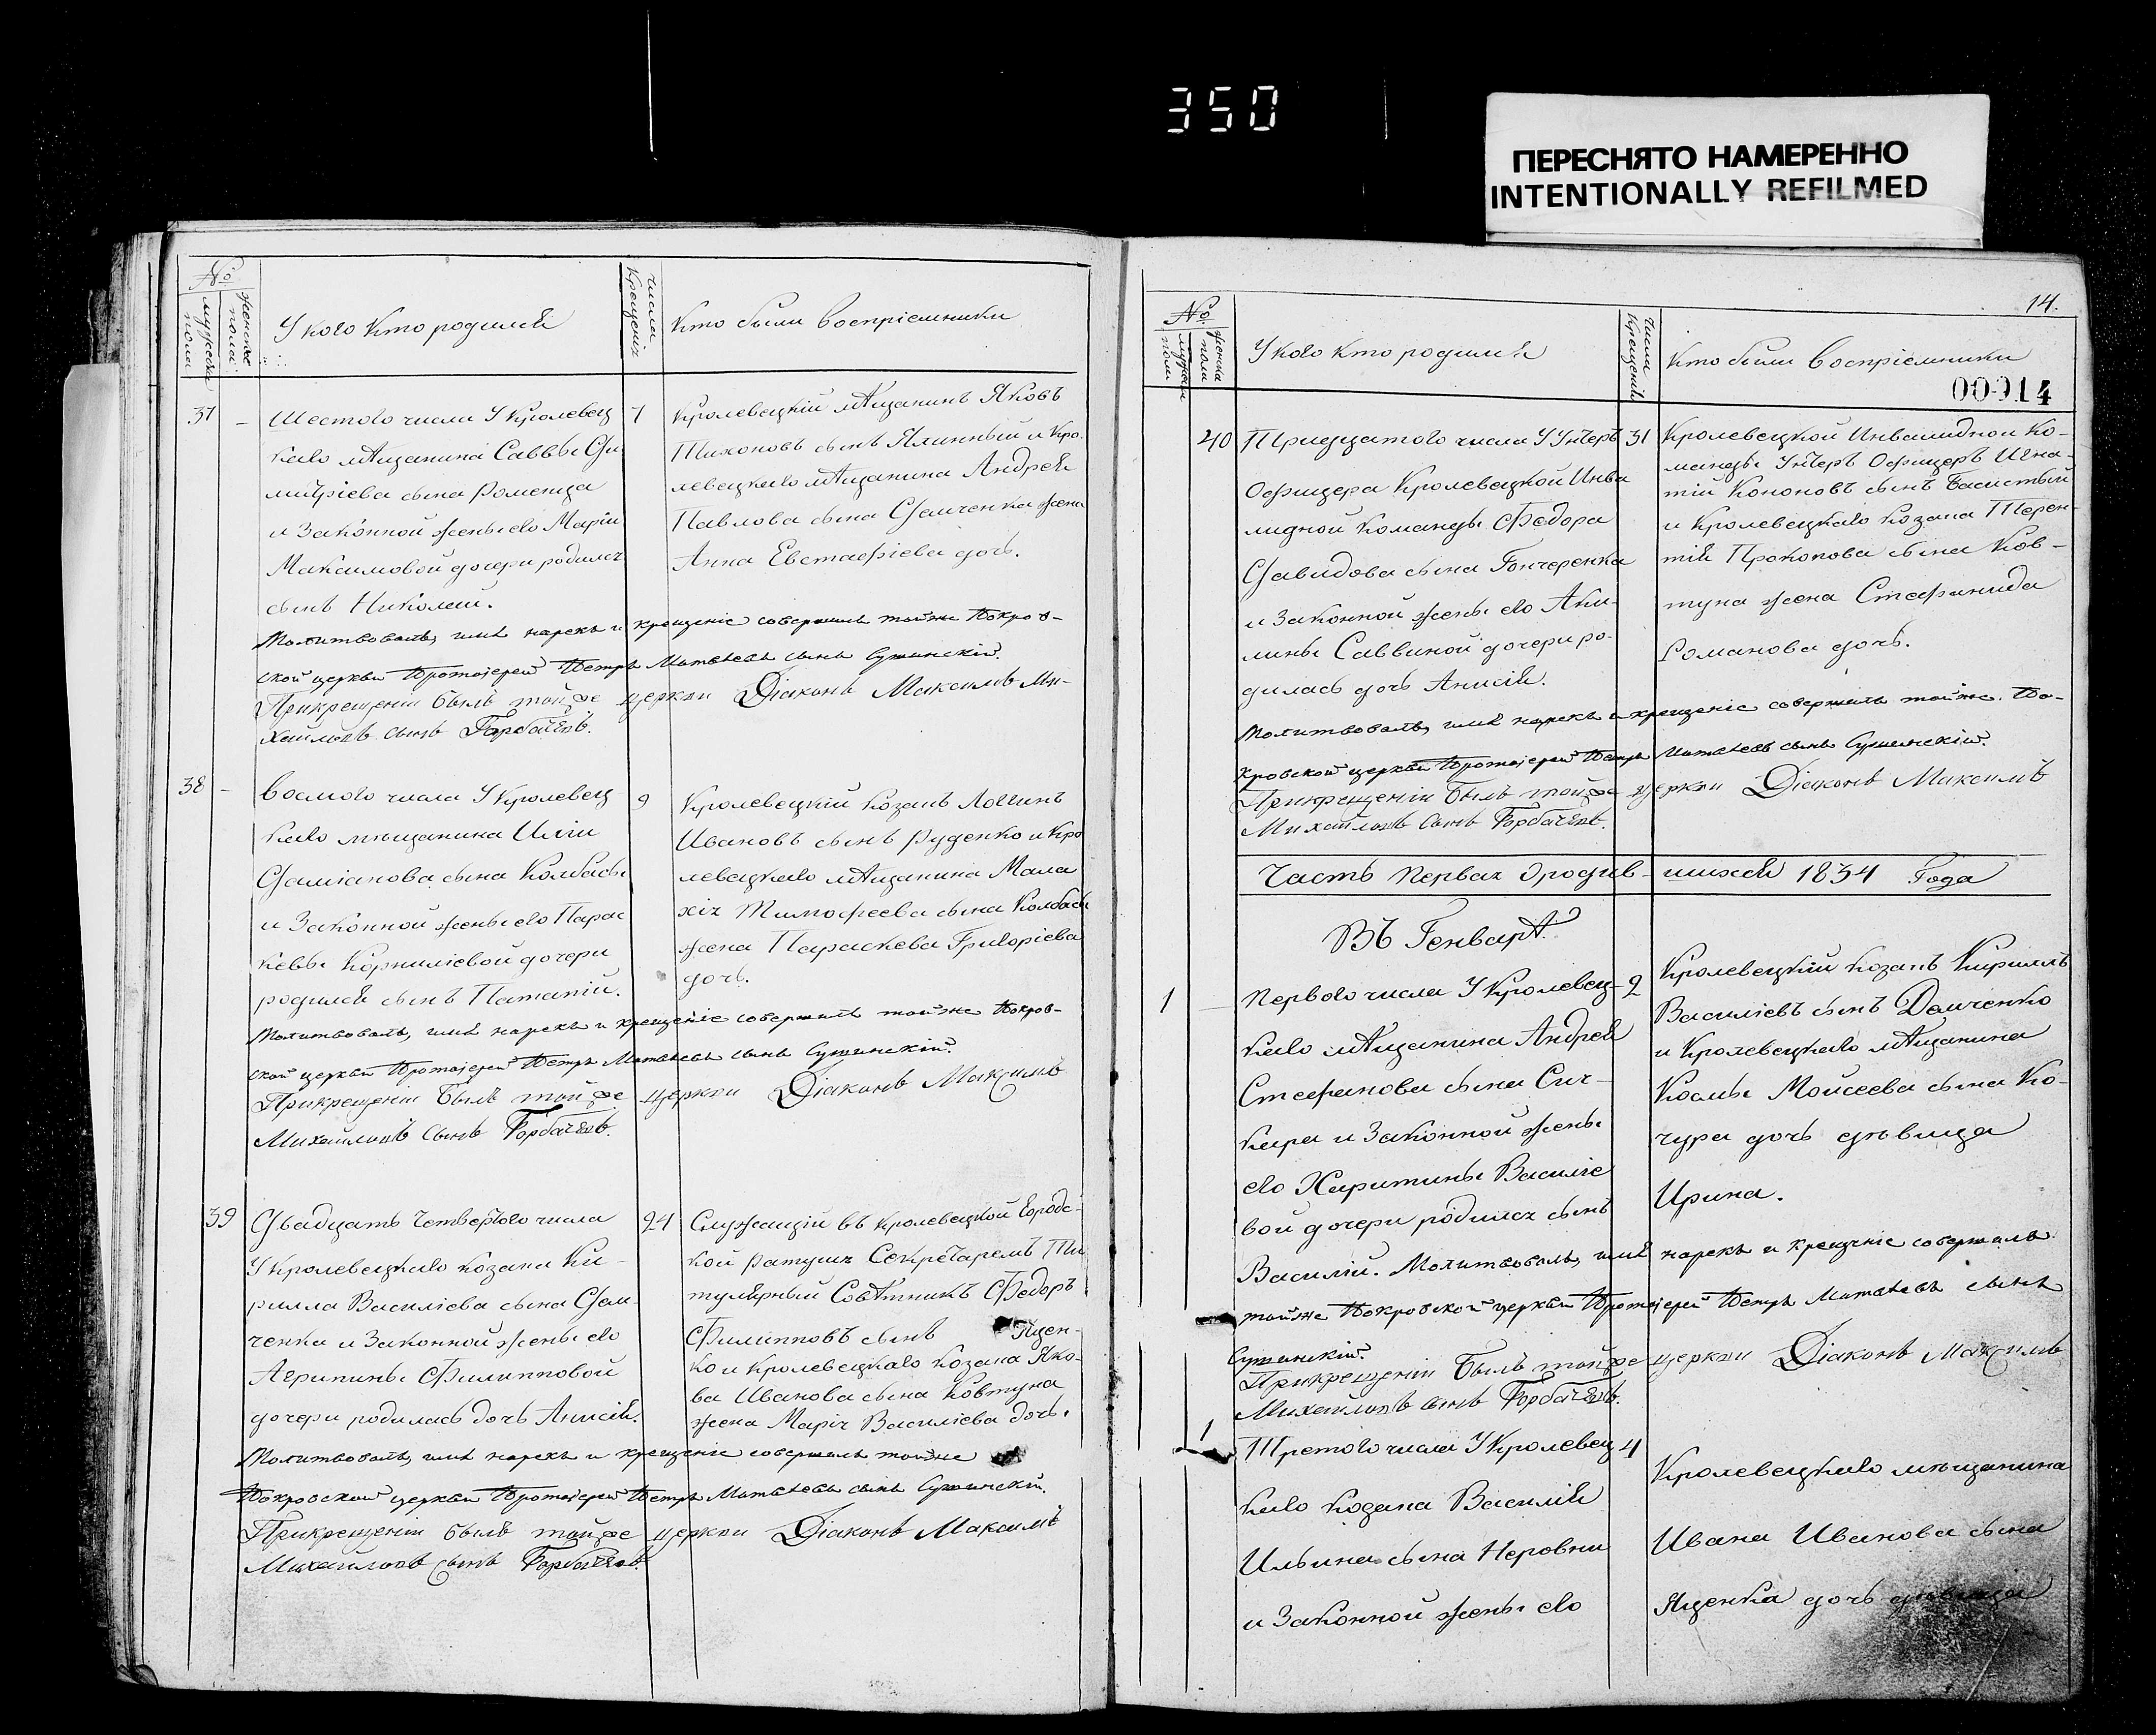 350
ПЕРЕСНЯТО НАМЕРЕННО
INTENTIONALLY REFILMED
№
мужеска пола
женска пола
У кого кто родился
числа крещенія
Кто были воспріемники
37
Шестого числа У Кролевец
каго мѣщанина Саввы Ди
митріева сына Роменца
и Законной жены его Маріи
Максимовой дочери родился
сынъ Николай.
7
Кролевецкій мѣщанинъ Яковъ
Тихоновъ сынъ Ялинный и Кро
левецкаго мѣщанина Андрея
Павлова сына Демченка жена
Анна Евстафіева дочь.
Молитвовалъ, имя нарекъ и крещеніе совершилъ тойже Покров-
ской церкви Протоіерей Петръ Матвѣевъ сынъ Сушинскій.
Прикрещеніи былъ тойже церкви Діаконъ Максимъ Ми-
хайловъ сынъ Горбачевъ.
38
восмого числа У Кролевец
каго мещанина Иліи
Даміанова сына Колбасы
и Законной жены его Парас
кевы Корниліевой дочери
родился сынъ Патапій.
9
Кролевецкій Козакъ Логинъ
Ивановъ сынъ Руденко и Кро
левецкаго мѣщанина Мала
хія Тимофеева сына Колбасы
жена Параскева Григоріева
дочь.
Молитвовалъ, имя нарекъ и крещеніе совершилъ тойже Покров-
ской церкви Протоіерей Петръ Матвѣевъ сынъ Сушинскій.
Прикрещеніи былъ тойже церкви Діаконъ Максимъ
Михайловъ сынъ Горбачевъ.
39
Двадцать Четвертого числа
У Кролевецкаго Козака Ки-
рилла Василіева сына Дем-
ченка и Законной жены его
Агрипины Филипповой
дочери родилась дочь Анисія.
24
Служащій въ Кролевецкой Городс-
кой Ратуши Секретаремъ Ти
тулярный Совѣтникъ Федоръ
Филипповъ сынъ Яцен-
ко и Кролевецкаго Козака Яко-
ва Иванова сына Ковтуна
жена Марія Василіева дочь.
Молитвовалъ, имя нарекъ и крещеніе совершилъ тойже
Покровской церкви Протоіерей Петръ Матвѣевъ сынъ Сушинскій.
Прикрещеніи былъ тойже церкви Діаконъ Максимъ
Михайловъ сынъ Горбачевъ.
14.
№
мужеска пола
женска пола
У кого кто родился
Числа Крещенія
Кто были воспріемники
00014
40
Тридцатого числа У Унтеръ
Офицера Кролевецкой Инва
лидной Команды Федора
Давидова сына Гончеренка
и Законной жены его Аки-
лины Саввиной дочери ро-
дилась дочь Анисія.
31
Кролевецкой Инвалидной Ко-
манды Унтеръ Офицеръ Игна-
тій Кононовъ сынъ Басистый
и Кролевецкаго Козака Терен-
тія Прокопова сына Ков-
туна жена Стефанида
Романова дочь.
Молитвовалъ, имя нарекъ и крещеніе совершилъ тойже По-
кровской церкви Протоіерей Петръ Матвѣевъ сынъ Сушинскій.
Прикрещеніи былъ тойже церкви Діаконъ Максимъ
Михайловъ сынъ Горбачевъ.
Часть Первая Ородив-шихся 1834 Года
Въ Генварѣ
1
Первого числа У Кролевец-
каго мѣщанина Андрея
Стефанова сына Сич-
кара и Законной жены
его Харитины Василіе
вой дочери родился сынъ
Василій.
2
Кролевецкій Козакъ Кириллъ
Василіевъ сынъ Демченко
и Кролевецкаго мѣщанина
Космы Мойсеева сына Ко-
чура дочь девица
Ирина.
Молитвовалъ, имя нарекъ и крещеніе совершилъ
тойже Покровской церкви Протоіерей Петръ Матвѣевъ сынъ
Сушинскій.
Прикрещеніи былъ тойже церкви Діаконъ Максимъ
Михайловъ сынъ Горбачевъ.
1
Третого числа У Кролевец
каго Козака Василія
Ильина сына Неровни
и Законной жены его
4
Кролевецкаго мещанина
Ивана Иванова сына
Яценка дочь девица